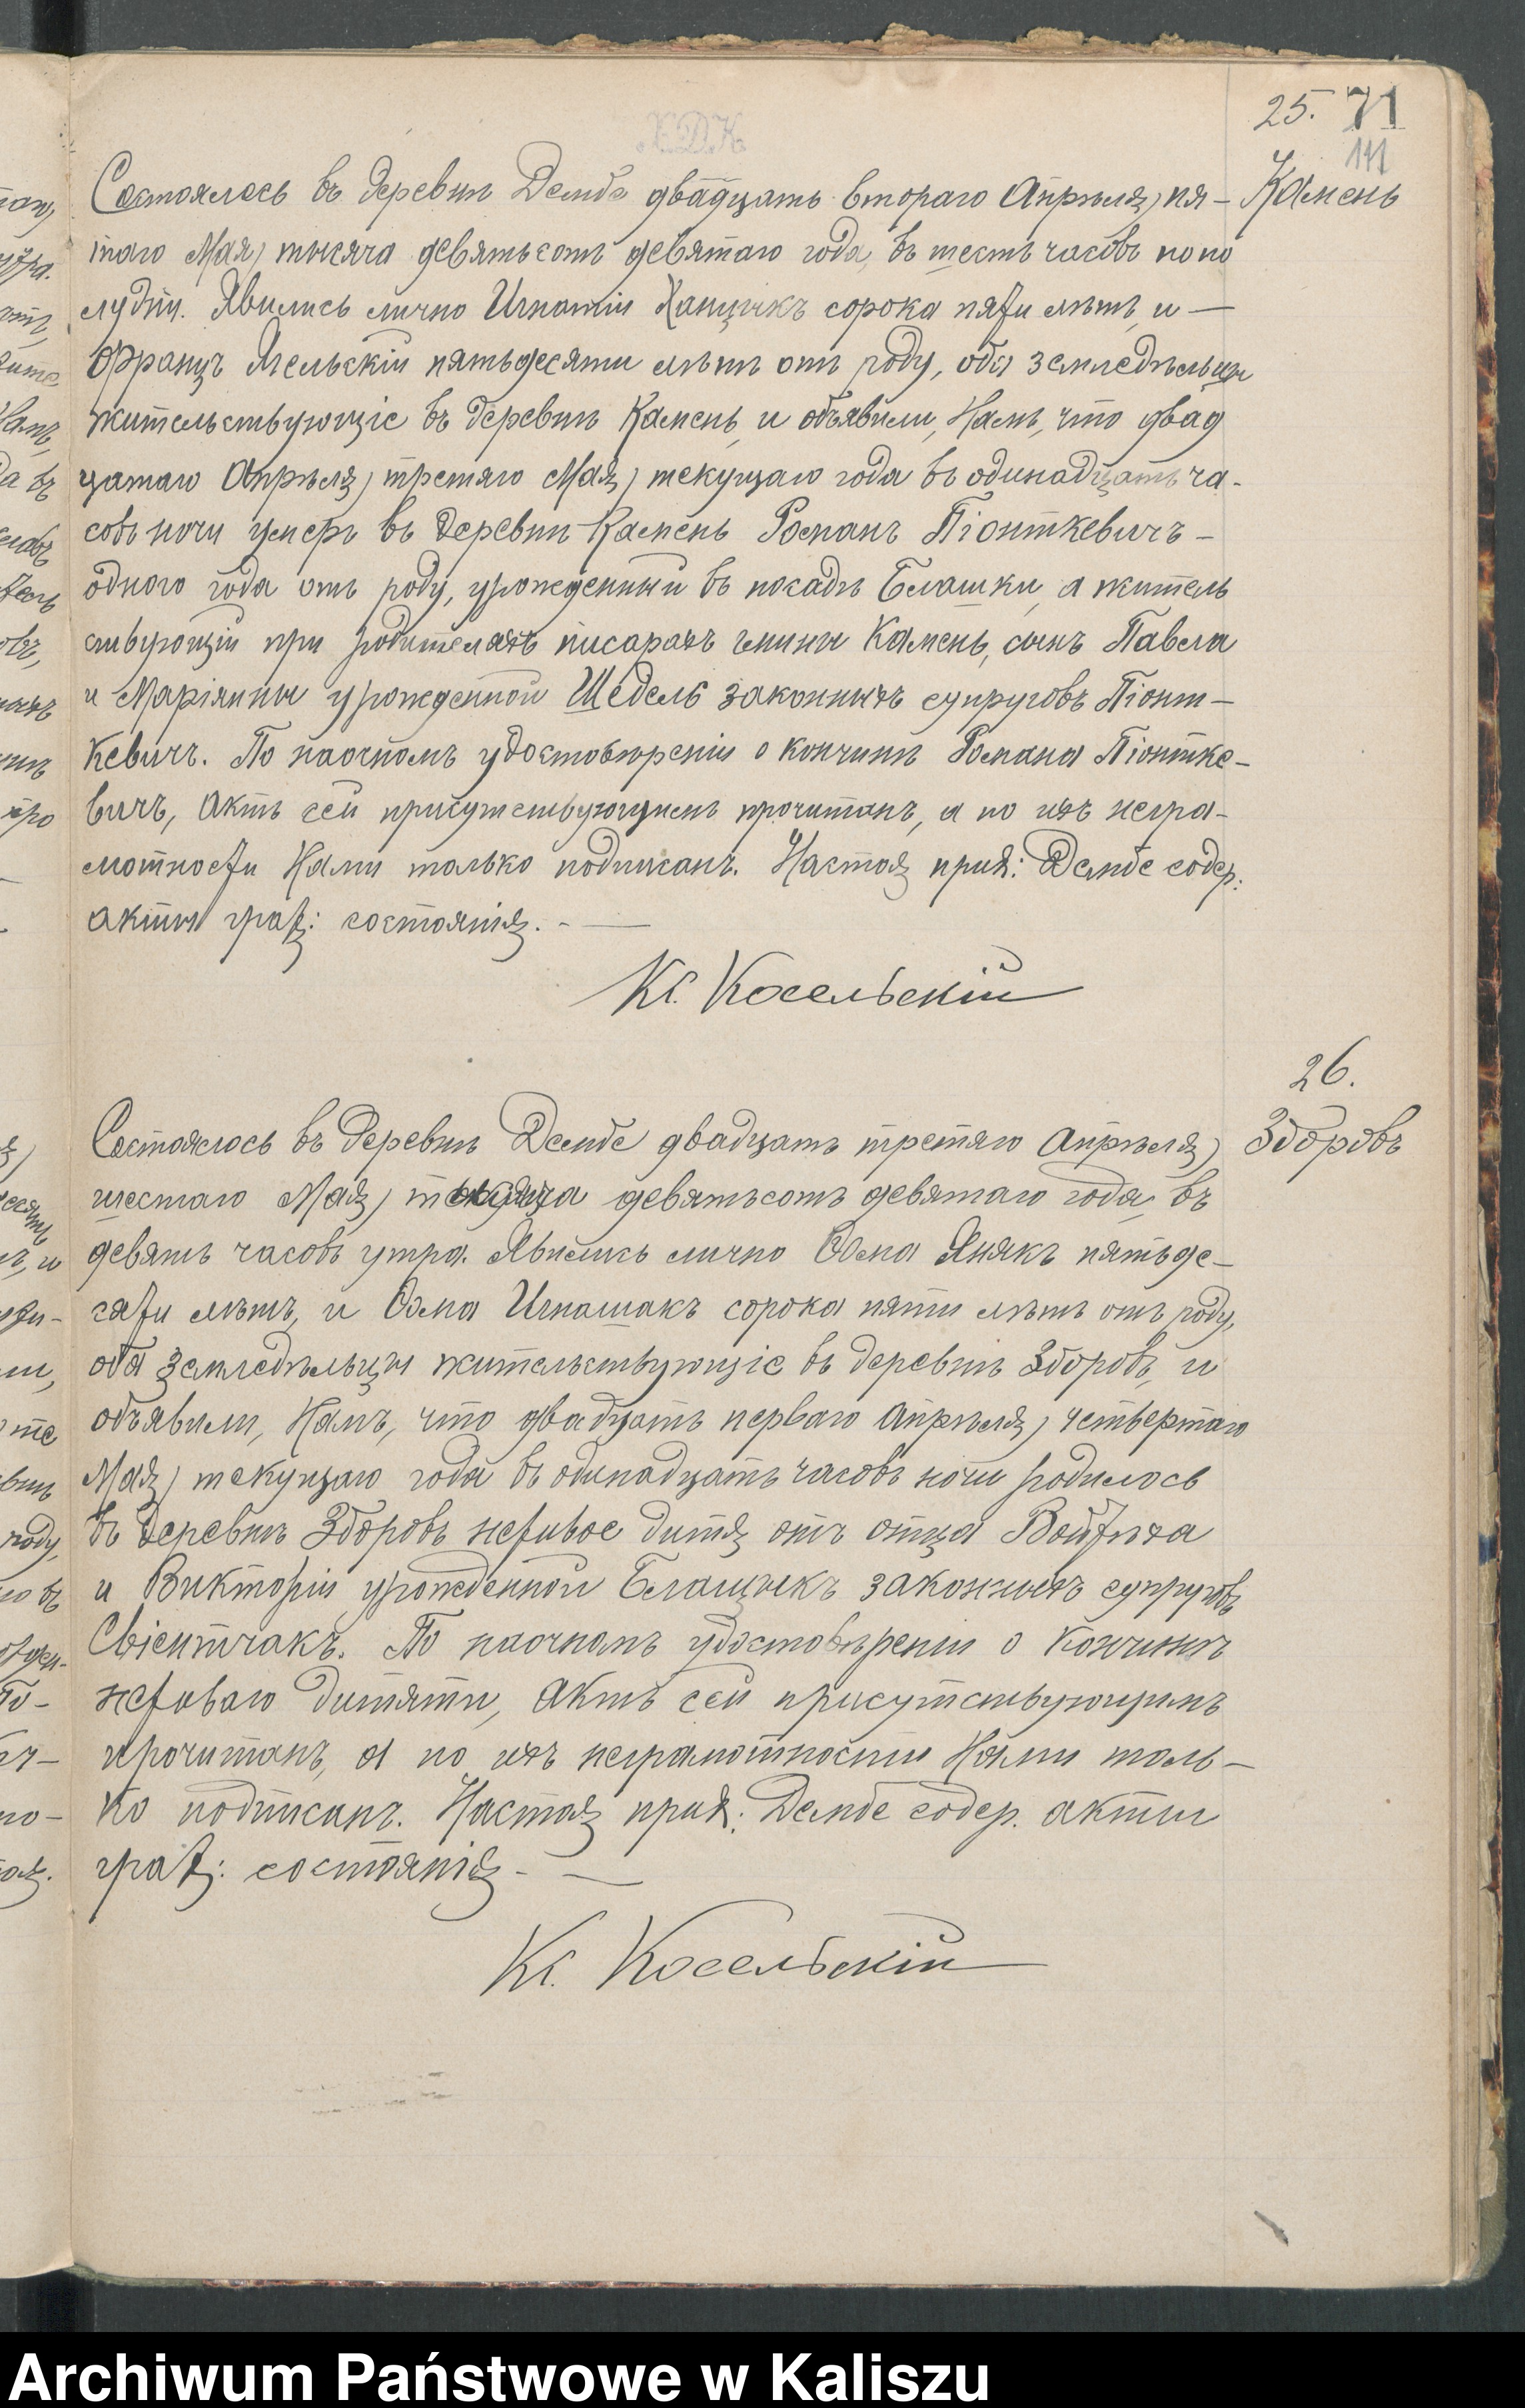 25. 71
141
Х.Д.К.
Камень
Состоялось въ деревнѣ Дембе двадцать втораго Апрѣля) пя-
таго Мая) тысяча девятьсотъ девятаго года, въ шесть часовъ попо
лудни. Явились лично Игнатій Ханцыкъ сорока пяти лѣтъ, и —
Францъ Ягельскій пятьдесяти лѣтъ отъ роду, оба земледѣльцы
жительствующіе въ деревнѣ Камень, и объявили, Намъ, что двад
цатаго Апрѣля) третяго Мая) текущаго года въ одинадцать ча-
совъ ночи умеръ въ деревнѣ Камень Романъ Піонткевичъ -
одного года отъ роду, урожденный въ посадѣ Блашки, а житель
ствующій при родителяхъ писаряхъ гмины Камень, сынъ Павела
и Маріянны урожденной Шедель законныхъ супруговъ Піонт-
кевичъ. По наочномъ удостовѣреніи о кончинѣ Романа Піонтке-
вичъ, Актъ сей присутствующимъ прочитанъ, а по ихъ негра-
мотности Нами только подписанъ. Настоя прих: Дембе содер:
акты граж: состоянія. - —
Кс. Косельскій
26.
Здоровъ
Состоялось въ деревнѣ Дембе двадцать третяго Апрѣля)
шестаго Мая) тысяча девятьсотъ девятаго года, въ
девять часовъ утра. Явились лично Ѳома Янякъ пятьде-
сяти лѣтъ, и Ѳома Игнашакъ сорока пяти лѣтъ отъ роду,
оба земледѣльцы жительствующіе въ деревнѣ Здоровъ, и
объявили, Намъ, что двадцать перваго Апрѣля) четвертаго
Мая) текущаго года въ одинадцать часовъ ночи родилось
въ деревнѣ Здоровъ неживое дитя отъ отца Войцѣха
и Викторіи урожденной Блащыкъ законныхъ супруговъ
Свіентчакъ. По наочномъ удостовѣреніи о кончинѣ
неживаго дитяти, Актъ сей присутствующимъ
прочитанъ, а по ихъ неграмотности Нами толь-
ко подписанъ. Настоя прих: Дембе содер. акты
граж: состоянія - —
Кс. Косельскій
Archiwum Państwowe w Kaliszu